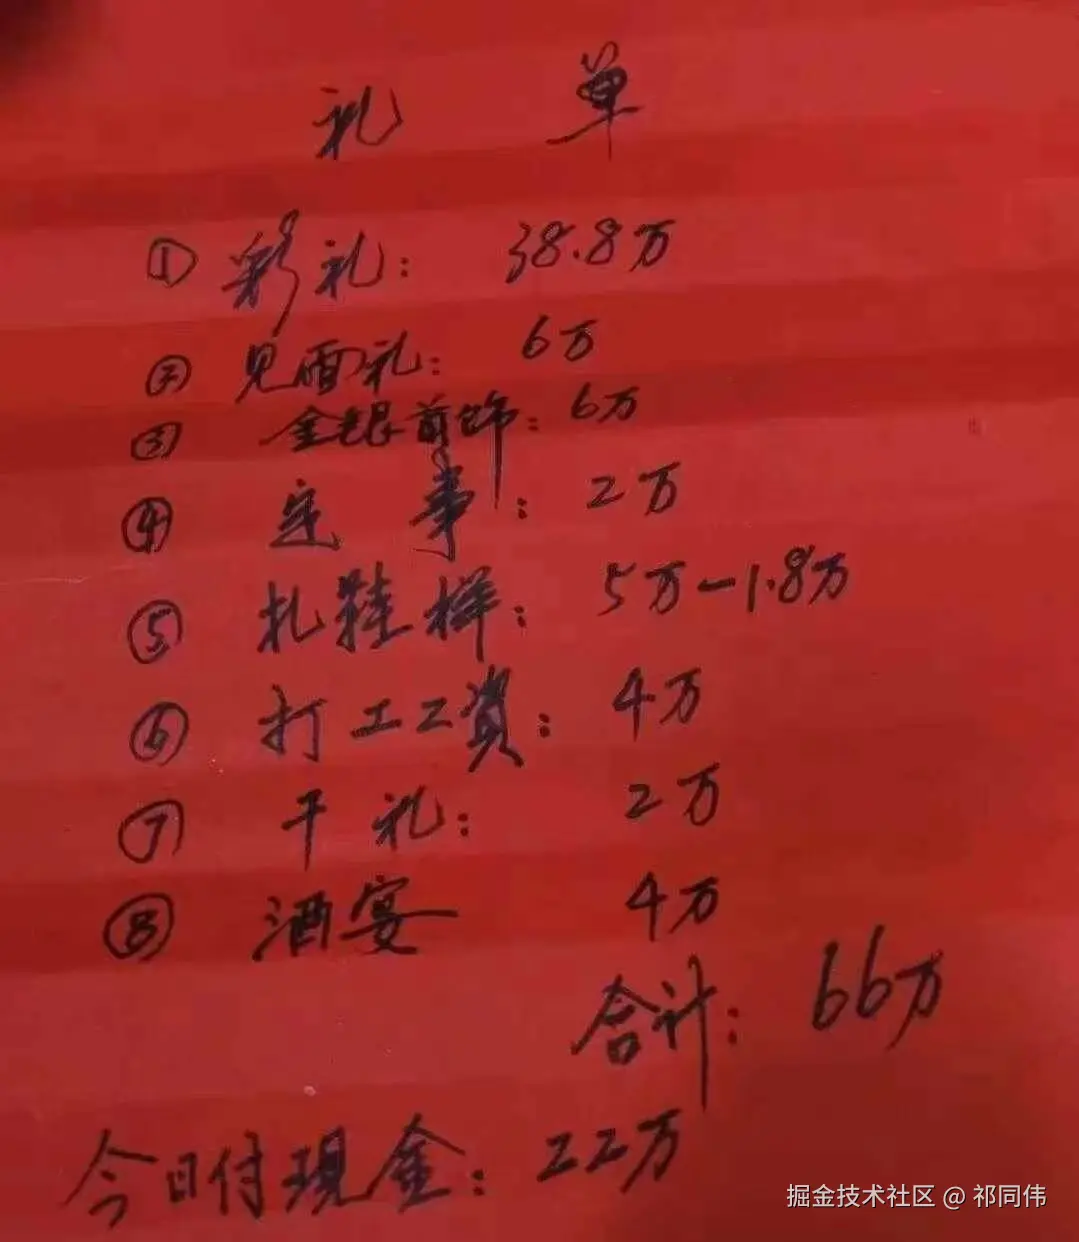 礼 单
① 彩礼: 38.8万
② 见面礼: 6万
③ 金银首饰: 6万
④ 定事: 2万
⑤ 扎鞋样: 5万-1.8万
⑥ 打工工資: 4万
⑦ 干礼: 2万
⑧ 酒宴 4万
合计: 66万
今日付现金: 22万
掘金技术社区 @ 祁同伟